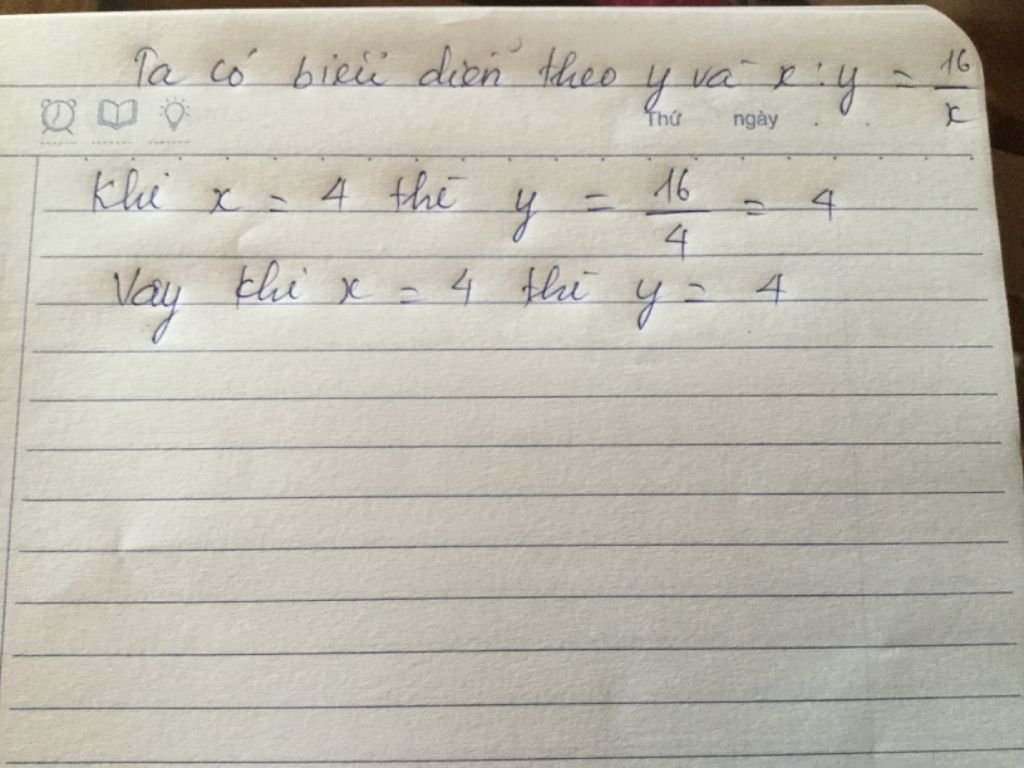 Ta có biểu diễn theo y và x : y = 16/x
Thứ ngày
Khi x = 4 thì y = 16/4 = 4
Vậy khi x = 4 thì y = 4